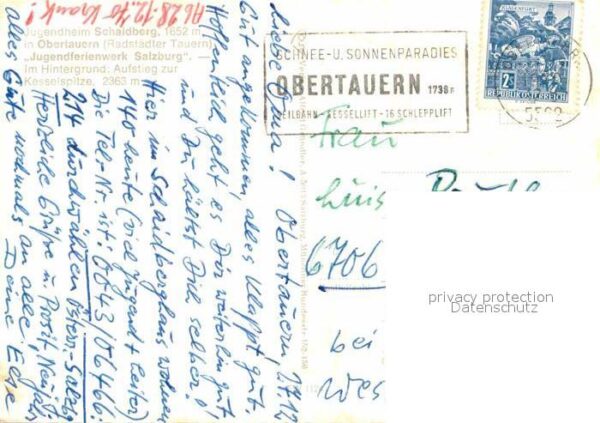 Ab 28.12.70 Krank!
Jugendheim Schaidberg, 1652 m
in Obertauern (Radstädter Tauern)
„Jugendferienwerk Salzburg".
Im Hintergrund: Aufstieg zur
Kesselspitze, 2363 m
SCHNEE-U. SONNENPARADIES
OBERTAUERN 1738 m
SEILBAHN-SESSELLIFT-16 SCHLEPPLIFT
KLAGENFURT
2 S
REPUBLIK ÖSTERREICH
5562
Obertauern, 27.12.
Liebe Oma!
Gut angekommen, alles klappt gut.
Hoffentlich geht es Dir weiterhin gut
und Du hältst Dich selber!
Hier im Schaidberghaus wohnen
140 Leute (viel Jugend + Leiter)
Die Tel-Nr. ist: 0043/06466
214 durchwählen Österr.-Salzbg
Herzliche Grüße u Prosit Neujahr
Alles Gute nochmals an alle!
Deine
Frau
Luis
6706
bei
Wes
privacy protection
Datenschutz